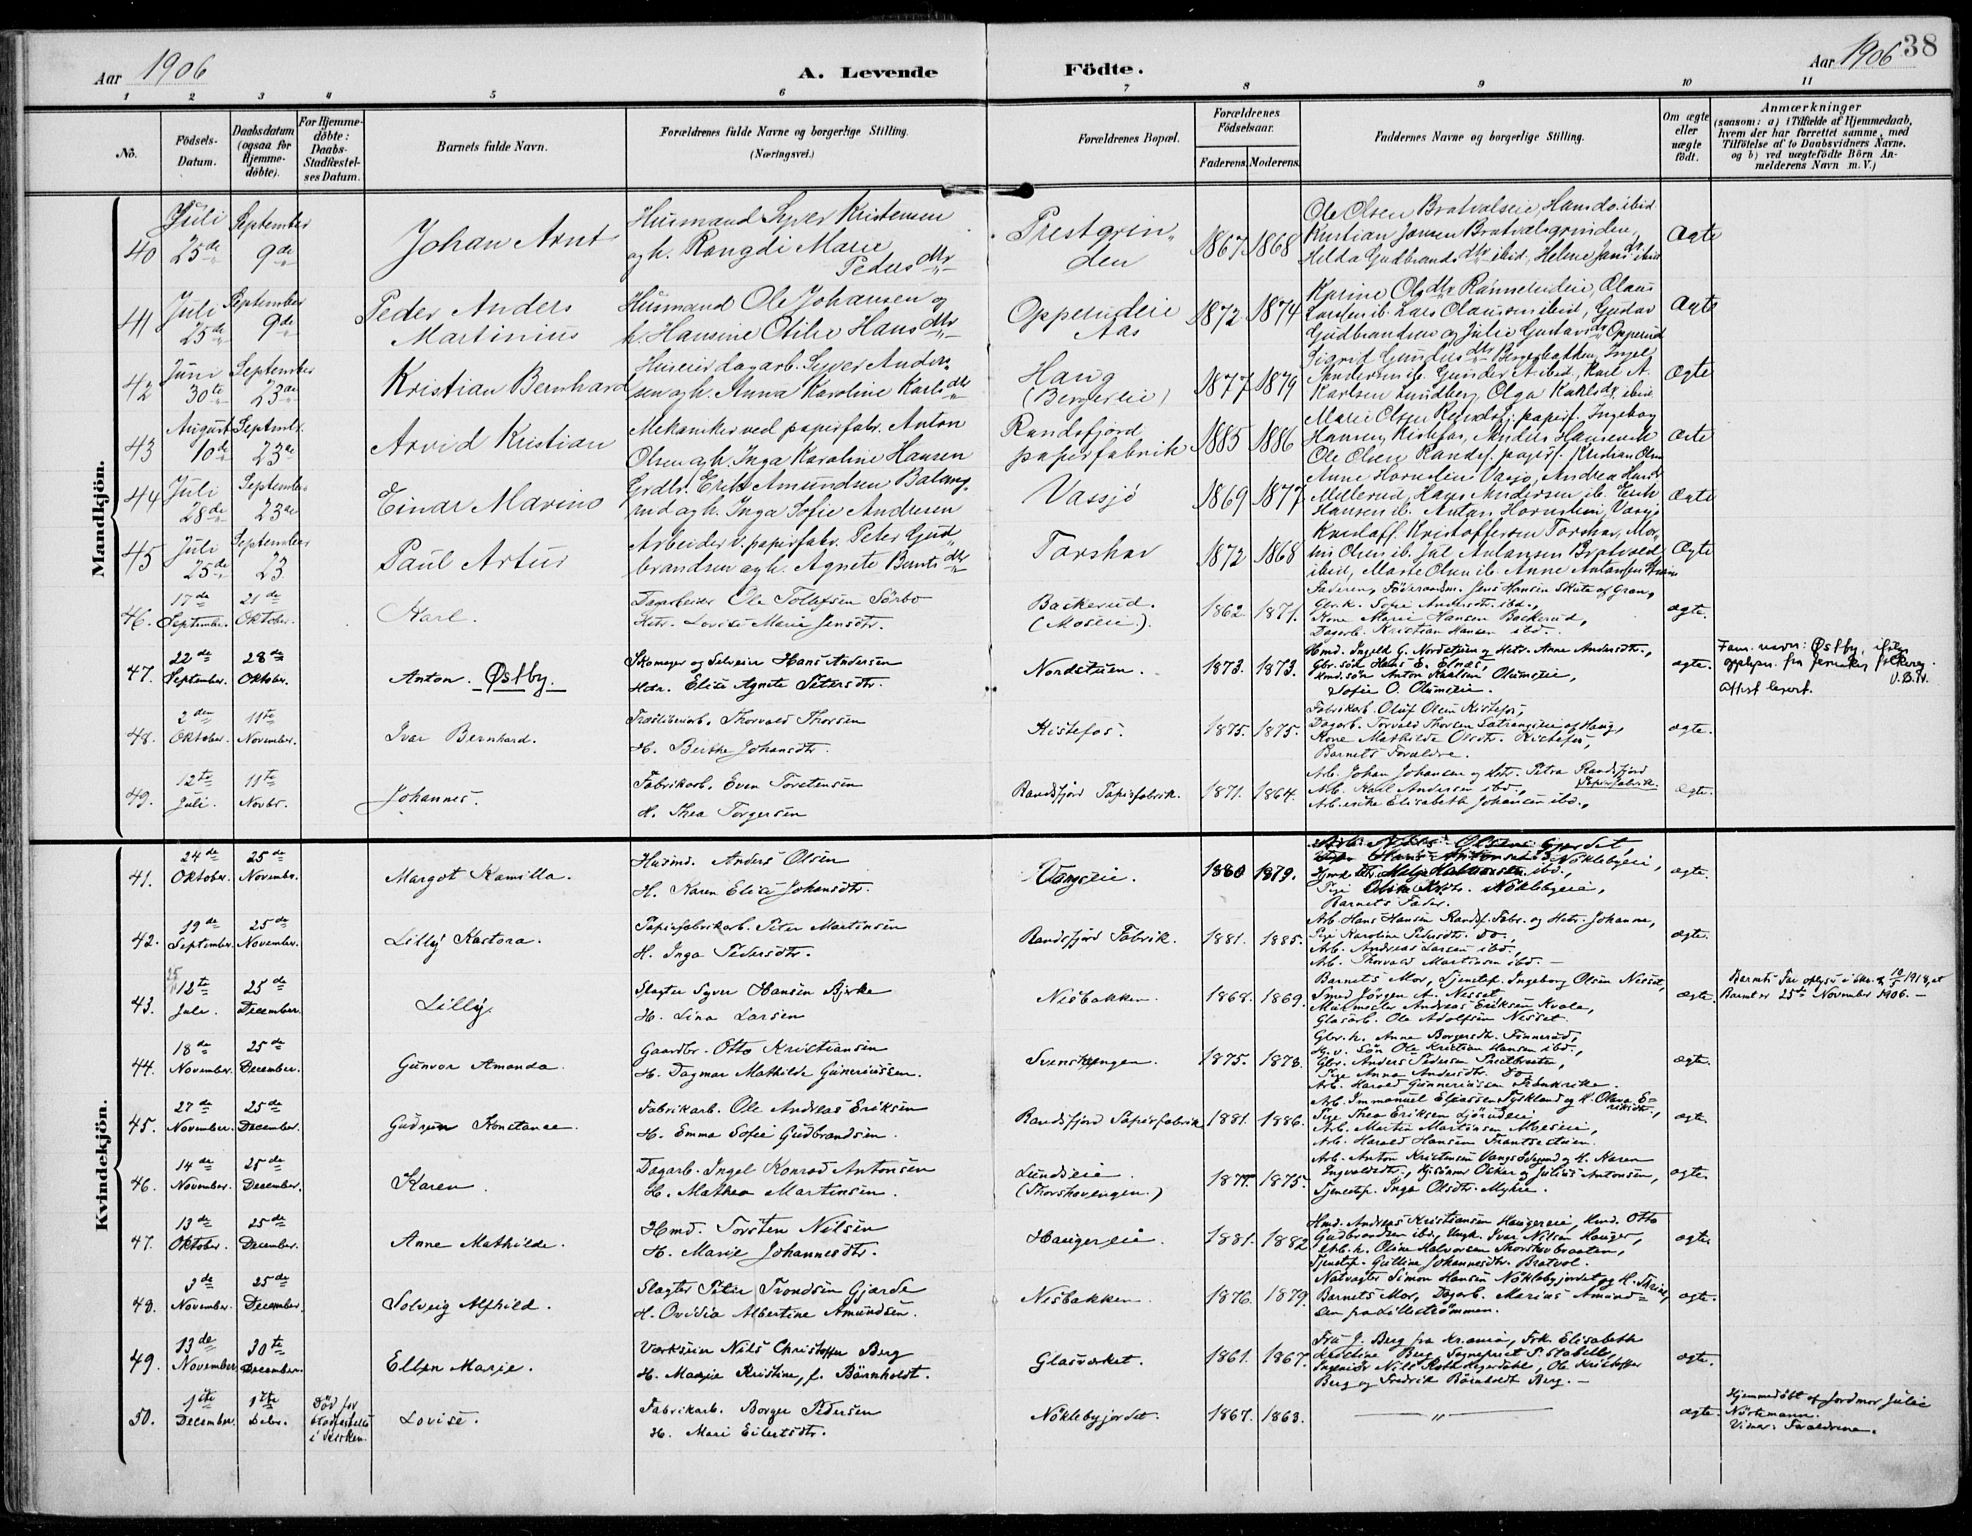 Aar 1906
A. Levende
Födte.
Aar 1906
38
1 2 3 4 5 6 7 8 9 10 11
No.
Födsels-
Datum.
Daabsdatum
(ogsaa for
Hjemme-
döbte).
For Hjemme-
döbte:
Daabs-
Stadfæstel-
ses Datum.
Barnets fulde Navn.
Forældrenes fulde Navne og borgerlige Stilling.
(Næringsvei.)
Forældrenes Bopæl.
Forældrenes
Födselsaar.
Faderens. Moderens.
Faddernes Navne og borgerlige Stilling.
Om ægte
eller
uægte
født.
Anmærkninger
(saasom: a) i Tilfælde af Hjemmedaab,
hvem der har forrettet samme, med
Tilföielse af to Daabsvidners Navne,
og b) ved uægtefödte Börn An-
melderens Navn m. V.)
Mandkjön.
40
Juli
25de
September
9de
Johan Arnt
Husmand Syver Kristensen
og h. Rangdi Marie
Pedersdtr
Prestgrin-
den
1867 1868
Ole Olsen Bratvalseie, Hans do. ibid
Kristian Jansen Bratvalsgrinden,
Hilda Gudbrandsdtr ibid, Helene Jansdtr ibid
Ægte
41
Juli
25de
September
9de
Peder Anders
Martinius
Husmand Ole Johansen og
h. Hansine Otilie Hansdtr
Opperudeie
Aas
1872 1874
Karine Olsdtr Ranneludeie, Olaus
Larsen ib. Lars Olausson ibid, Gustav
Gudbrandsen og Julie Gustavsdtr Opperud
Ægte
42
Juni
30te
September
23de
Kristian Bernhard
Huseier dagarb. Syver Ander-
sen og h. Anna Karoline Karlsdtr
Haug
(Bergerseie)
1877 1879
Sigrid Gundersdtr Bergerbakken, Ingel
Andersen ib. Gunder A. ibid, Karl A.
Karlsen Lundberg, Olga Karlsdtr ibid.
Ægte
43
August
10de
Septembr.
23de
Arvid Kristian
Mekaniker ved papirfabr. Anton
Olsen og h. Inga Karoline Hansen
Randsfjord
papirfabrik
1885 1886
Marie Olsen Randsfj. papirf. Ingeborg
Hansen, Kistefos, Anders Hansen ib
Ole Olsen Randsf. papirf. Kristian Olsen
Ægte
44
Juli
28de
September
23de
Einar Marino
Grdbr. Erik Amundsen Balang-
rud og h. Inga Sofie Andresen
Vassjö
1869 1877
Anne Hornslien Vasjö, Andrea Hansdtr
Millerud, Hans Andersen ib. Erik
Hansen ib. Anton Hornslien, Vasjö
Ægte
45
Juli
25de
September
23
Paul Artur
Arbeider v. papirfabr. Peter Gud-
brandsen og h. Agnete Berntsdtr
Torshov
1872 1868
Kristoff. Kristoffersen Torshov, Mar-
Olsen ib. Jul. Antonsen Bratvold
ibid, Marte Olsen ib. Anne Antonsen
Ægte
46.
17de
September.
21de
Oktober.
Karl.
Dagarbeider Ole Tollefsen Sörbo
Hstr. Lovise Marie Jensdtr.
Backerud.
(Moseie).
1862 1871.
Faderen, Föderaadm. Jens Hansen Skute af Gran,
Gbr.k. Sofie Andersdtr. ibd.,
Kone Marie Hansen Backerud,
Dagarb. Kristian Hansen ibd.
ægte.
47.
22de
September.
28de
Oktober.
Anton. Østby.
Skomager og Selveier Hans Andersen
Hstr. Elise Agnete Petersdtr.
Nordstuen.
1873. 1873.
Hmd. Ingeld G. Nordstuen og Hstr. Anne Andersdtr.,
Gbr.sön Hans E. Elnæs,
Hmd.sön Anton Karlsen Olumseie,
Sofie O. Olumseie.
ægte.
Fam. navn: Østby, ifter
opplysn. fra Jevnaker folkereg.
V.B.Tv.
Attest levert.
48.
2den
Oktober.
11te
November.
Ivar Bernhard.
Træsliberiarb. Thorvald Thorsen
H. Berthe Johansdtr.
Kistefos.
1875. 1875.
Fabrikarb. Oluf Olsen Kistefos,
Dagarb. Torvald Thorsen Satrangseie af Haug,
Kone Mathilde Olsdtr. Kistefos,
Barnets Forældre.
ægte.
49.
12te
Juli.
11te
Novbr.
Johannes.
Fabrikarb. Even Torstensen
H. Thea Torgersen
Randsfjord Papirfabrik.
1871. 1864.
Arb. Johan Johansen og Hstr. Petra Randsfjord
Papirfabrik.
Arb. Karl Andersen ibd.,
Arb.enke Elisabeth Johansen ibd.,
ægte.
Kvindekjön.
41.
24de
Oktober.
25de
Novembr.
Margot Kamilla.
Husmd. Anders Olsen
H. Karen Elise Johansdtr.
Vangseie.
1880 1879.
Nöklebyeie,
Nöklebyeie,
Barnets Fader.
ægte.
42.
19de
September.
25de
November.
Lilly Kastora.
Papirfabrikarb. Peter Martinsen
H. Inga Pedersdtr.
Randsfjord Fabrik.
1881. 1885.
Arb. Hans Hansen Randsf. Fabr. og Hstr. Johanne,
Pige Karoline Pedersdtr. Do.,
Arb. Andreas Larsen ibd.,
Arb. Thorvald Martinsen ibd. —
ægte.
43.
25
12te
Jule.
25de
December.
Lilly.
Slagter Syver Hansen Bjerke
H. Lina Larsen
Nesbakken.
1868. 1869.
Barnets Mor, Tjenestep. Ingeborg Olsen Nesset,
Smed Jörgen A. Nesset,
Malmester Andreas Eriksen Kvale,
Glasarb. Ole Adolfsen Nesset.
ægte.
Barnets Far oplyser i skr. af 10/5 1918, at
Barnet er 25de November 1906. —
44.
18de
November.
25de
December.
Gunvor Amanda.
Gaardbr. Otto Kristiansen
H. Dagmar Mathilde Gunneriussen.
Svenskengen.
1875. 1878.
Gbr. h. Anna Borgersdtr. Finnerud,
H.v. Sön Ole Kristian Hansen ibd.,
Gbr. Anders Pedersen Prestbraaten,
Pige Anna Andersdtr. Do.
Arb. Harald Gunneriussen
ægte.
45.
27de
November.
25de
December.
Gudrun Konstanse.
Fabrikarb. Ole Andreas Eriksen
H. Emma Sofie Gudbrandsen.
Randsfjord Papirfabrik
1881. 1886.
Arb. Immanuel Eliassen Tyskland og H. Olava E-
riksdtr.,
Pige Thea Eriksen Sjörudeie,
Arb. Martin Martinsen Moeseie,
Arb. Harald Hansen Trantsetuen.
ægte.
46.
14de
November.
25de
December.
Karen.
Dagarb. Ingel Konrad Antonsen
H. Mathea Martinsen.
Lundseie.
(Thorshovengen.)
1877. 1875.
Arb. Anton Kristensen og H. Karen
Ingvaldsdtr., Hjemme Oskar og Julius Antonsen,
Tjenestep. Inga Olsdtr. Myhre.
ægte.
47.
13de
Oktober.
25de
December.
Anne Mathilde.
Hmd. Torsten Nilsen
H. Marie Johannesdtr.
Haugereie.
1881. 1882.
Hmd. Andreas Kristiansen Haugereie, Hmd. Otto
Gudbrandsen ibd., Ungk. Ivar Nilsen Hauger,
Arb. h. Oline Halvorsen Thorshovbraaten,
Tjenestep. Gulline Johannesdtr. Bratvol.
ægte.
48.
3de
November.
25de
December.
Solveig Alfhild.
Slagter Peter Trondsen Gjærde
H. Ovidia Albertine Amundsen.
Nesbakken.
1876. 1879.
Natvagter Simon Hansen Nöklebyjordet og H. Thrine,
Barnets Mor, Dagarb. Marius Amund-
sen fra Lilleströmmen.
ægte.
49.
13de
November.
30te
December.
Ellen Marie.
Værkseier Nils Christoffer Berg
H. Marie Kristine, f. Börnholdt.
Glasværket.
1861. 1867.
Fru J. Berg fra Kr.ania, Frk. Elisabeth
Karoline Berg, Sogneprest P. Stabell,
Ingeniör Nils, Ole Kristoffer
Berg og Fredrik Börnholdt Berg. —
ægte.
50.
1ste
December.
1ste
Debr.
Död før
stadfæstelse
i Kirken.
Lovise.
Fabrikarb. Borger Pedersen
H. Mari Eilertsdtr.
Nöklebyjordet.
1867. 1863.
— „ —
ægte.
Hjemmedöbt af Jordmor Julie
Nörstemann.
Vidner: Forældrene.